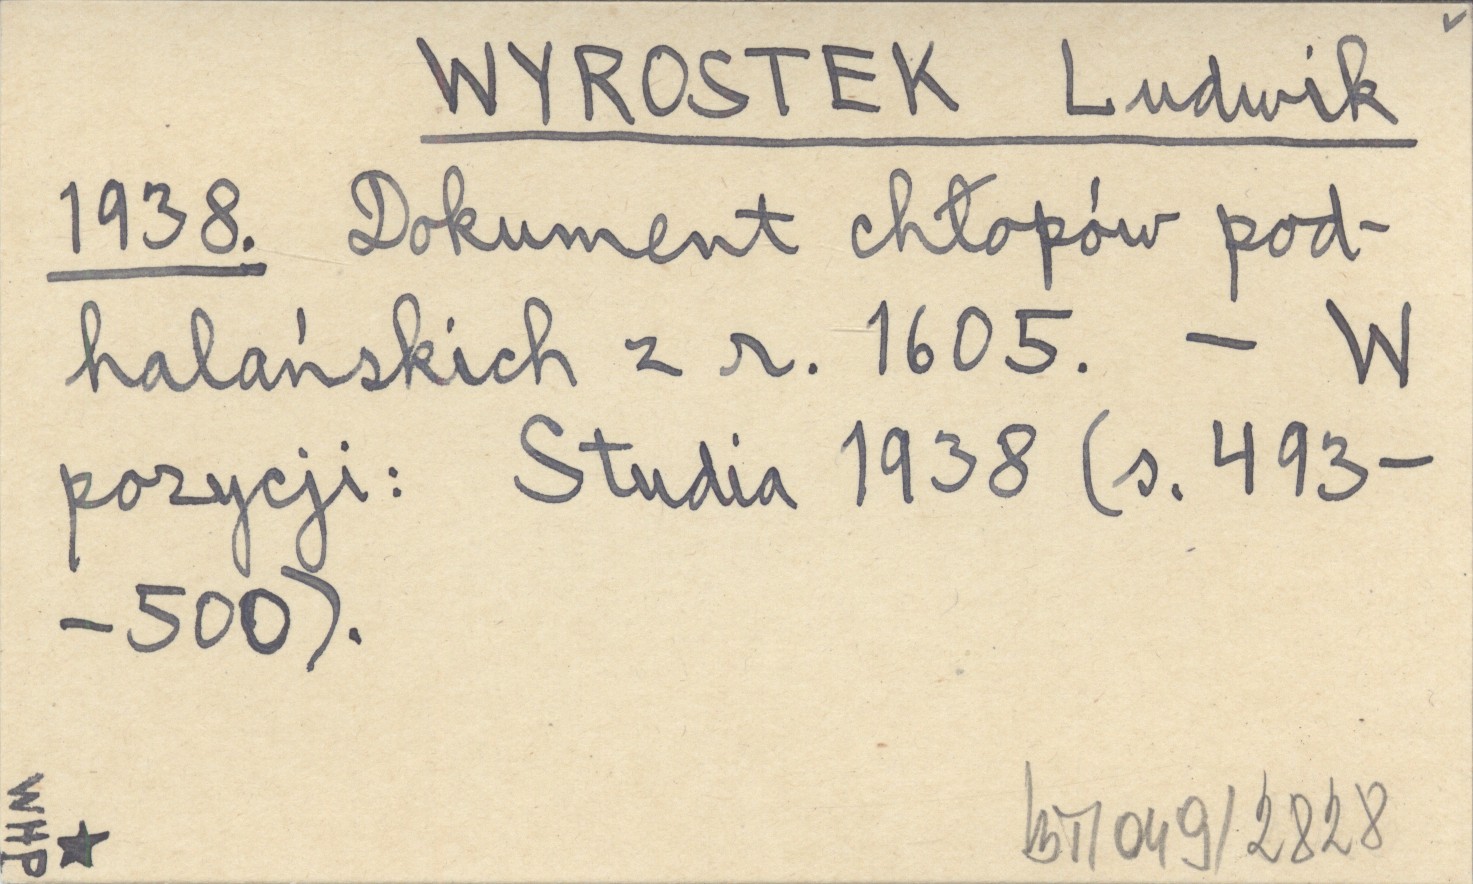 WYROSTEK Ludwik
1938. Dokument chłopów pod-
halańskich z r. 1605. – W
pozycji: Studia 1938 (s. 493–
–500).
WHP
BT/049/2828